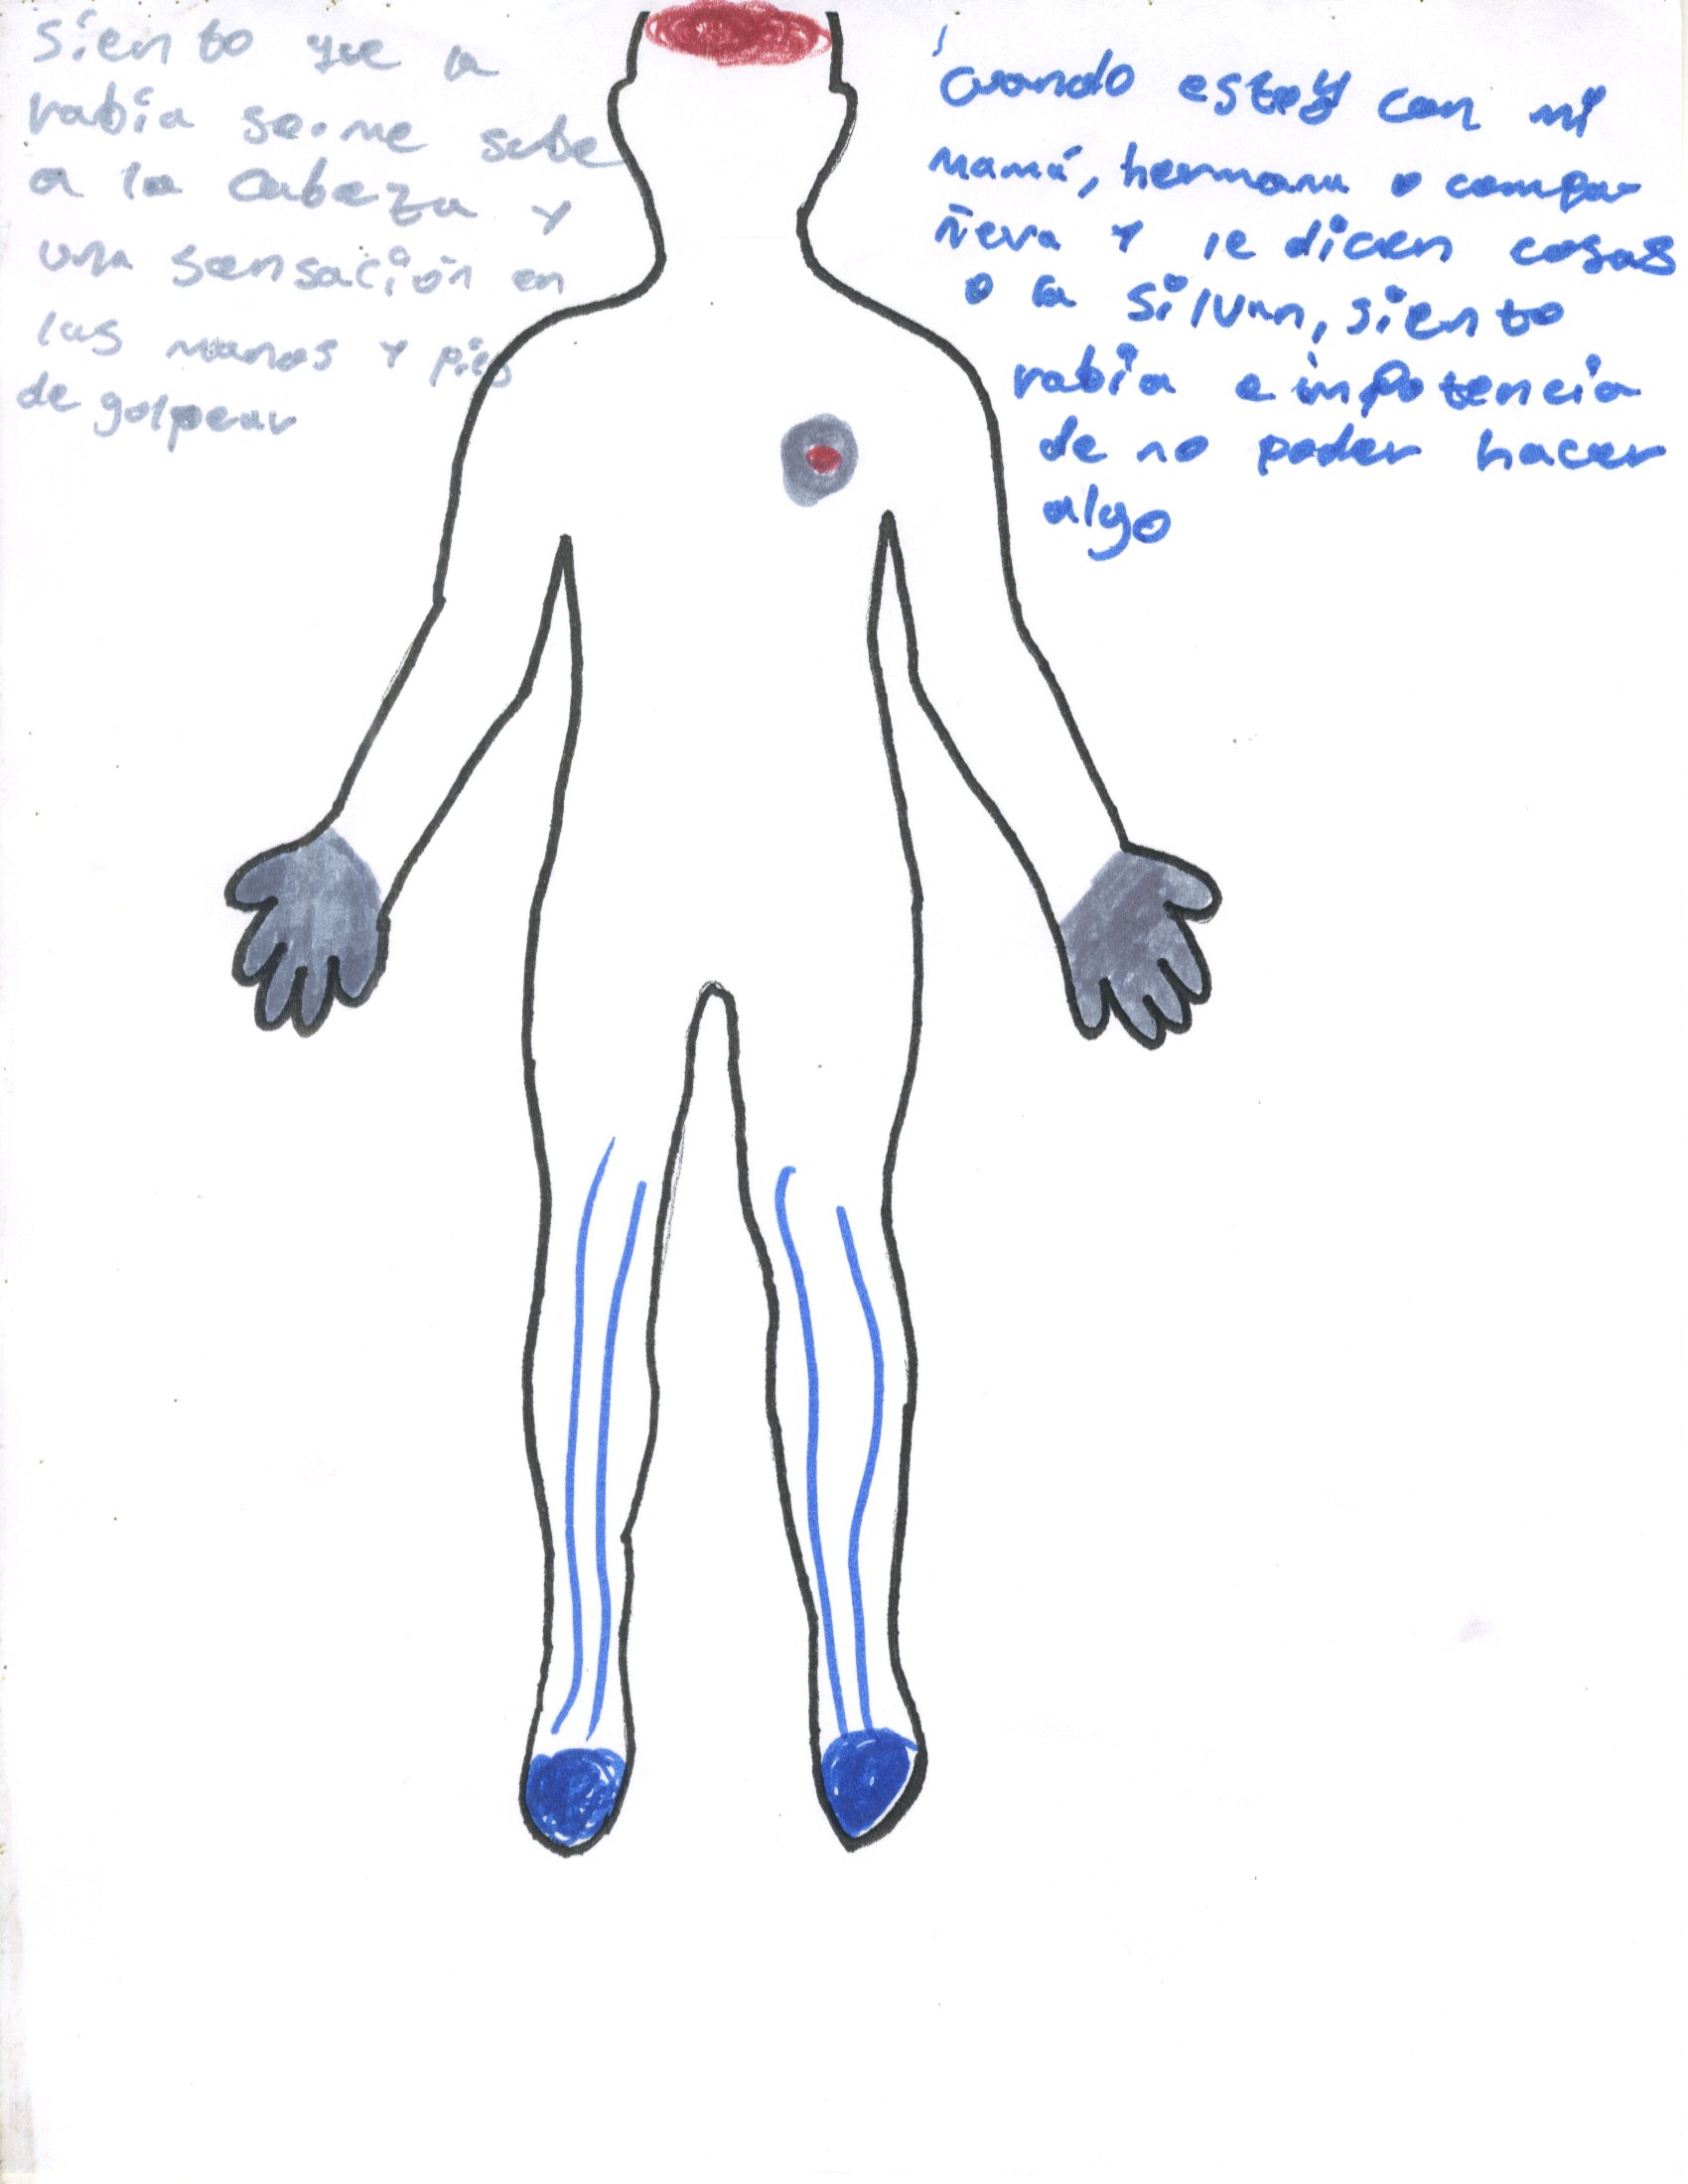 siento que a
rabia se me sube
a la cabeza y
una sensación en
las manos y pies
de golpear
Cuando estoy con mi
mamá, hermana o compa
ñera y le dicen cosas
o la silvan, siento
rabia e inpotencia
de no poder hacer
algo